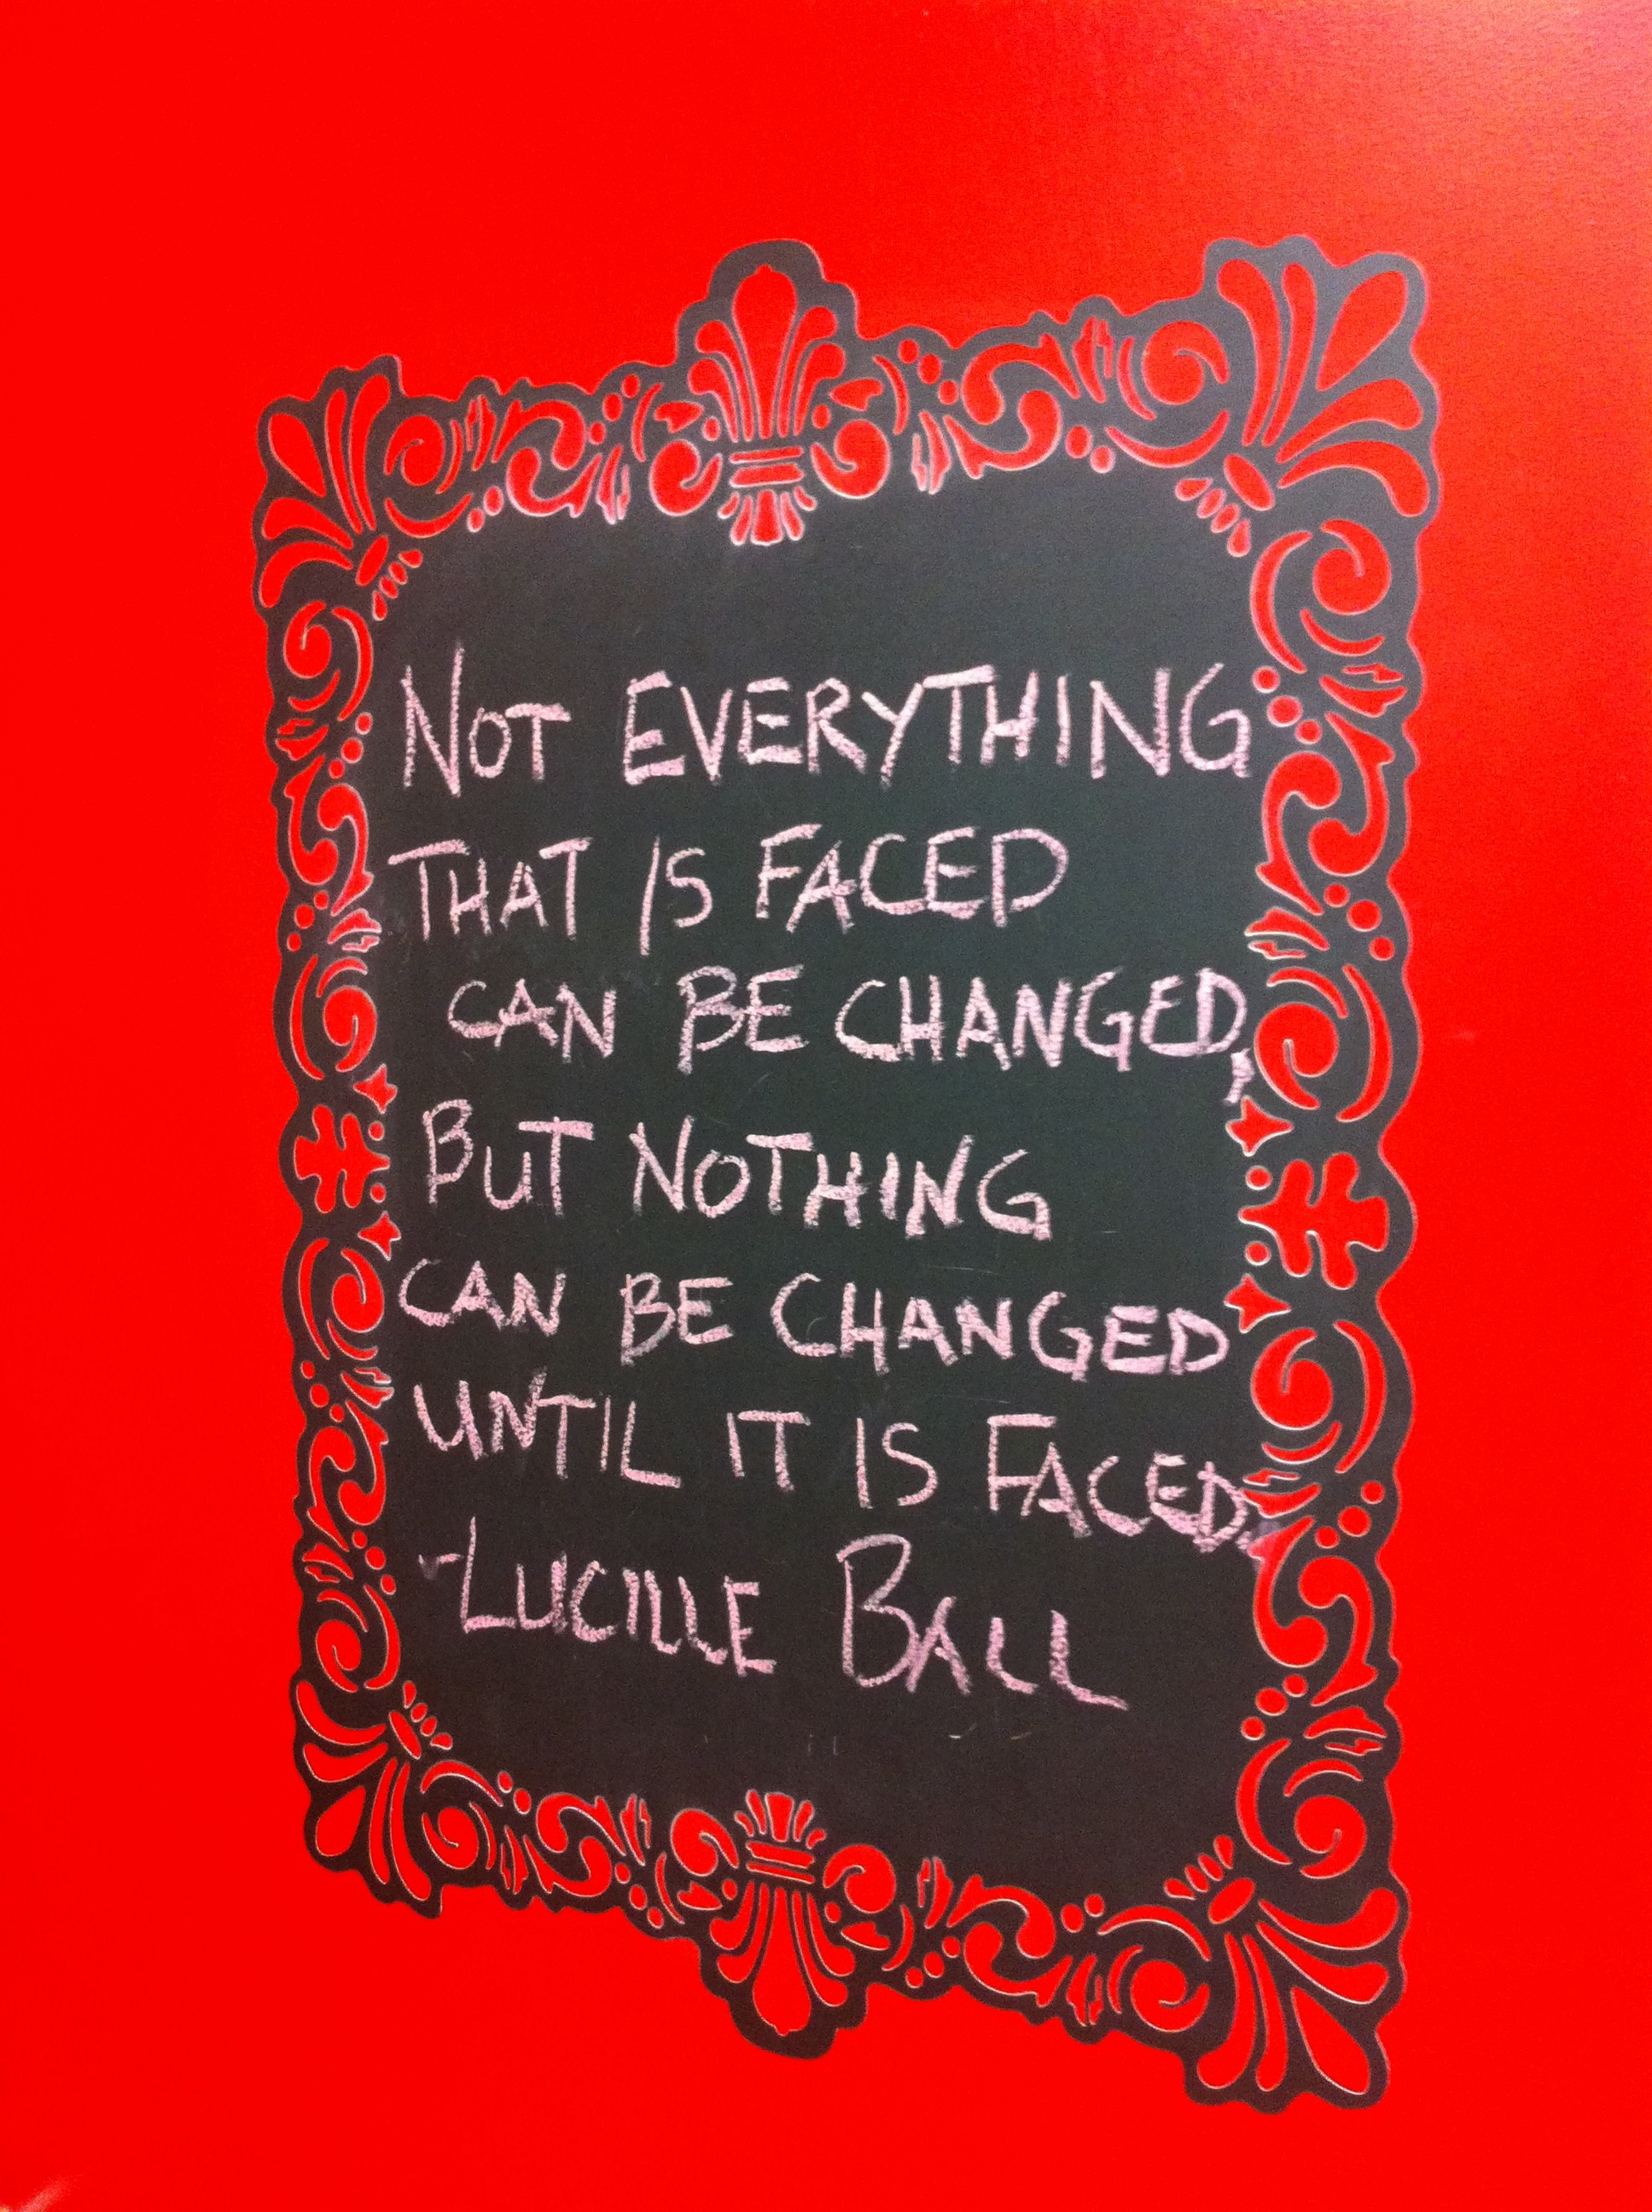 NOT EVERYTHING
THAT IS FACED
CAN BE CHANGED,
BUT NOTHING
CAN BE CHANGED
UNTIL IT IS FACED.
-LUCILLE BALL